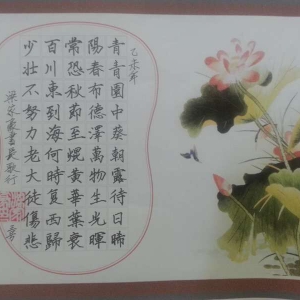 乙未年
青青園中葵朝露待日晞
陽春布德澤萬物生光暉
常恐秋節至焜黃華葉衰
百川東到海何時復西歸
少壯不努力老大徒傷悲